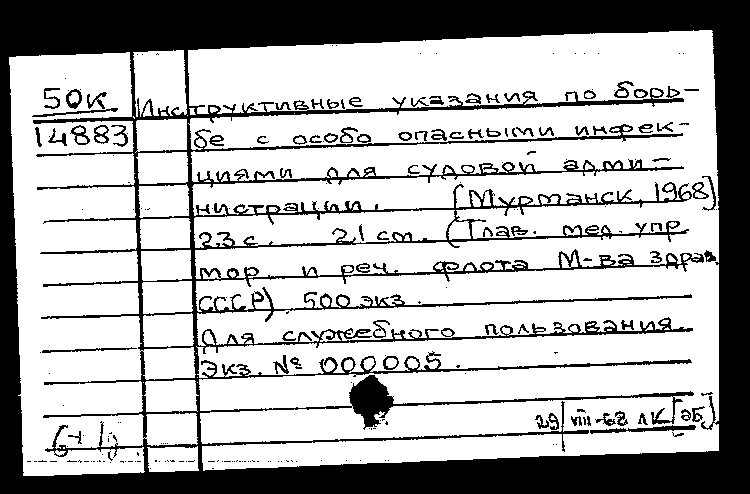 50к. Инструктивные указания по борь-
14883 бе с особо опасными инфек-
циями для судовой адми-
нистрации. [Мурманск, 1968]
23 с. 21 см. (Глав. мед. упр.
мор. и реч. флота М-ва здрав.
СССР) 500 экз.
Для служебного пользования.
Экз. № 000005.
29 VIII-68 ЛК [ЭБ]